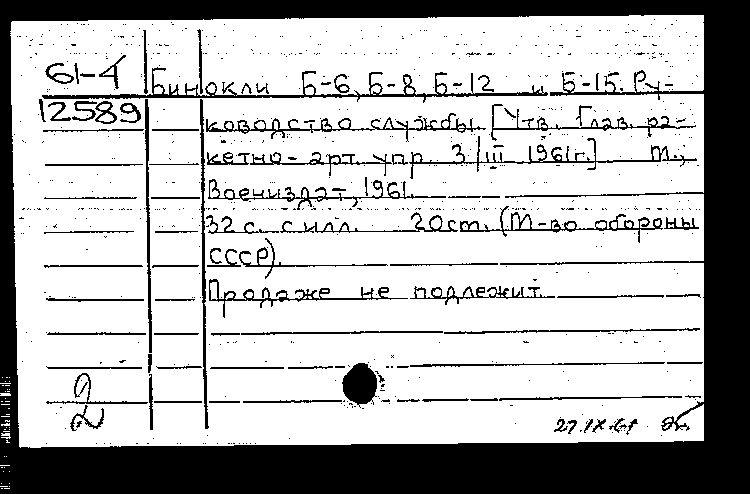 61-4
12589
Бинокли Б-6, Б-8, Б-12 и Б-15. Ру-
ководство службы. [Утв. Глав. ра-
кетно-арт. упр. 3/III 1961г.] М.,
Воениздат, 1961.
32 с. с илл. 20 cm. (М-во обороны
СССР).
Продаже не подлежит.
2
27.IX.61